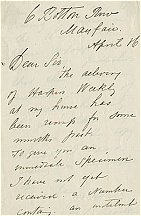 6 Rotten Row
Mayfair.
April 16
Dear Sir,
The delivery
of Harpers Weekly
at my house has
been remiss for some
months past
To give you an
immediate specimen
I have not yet
received a Number
containing an